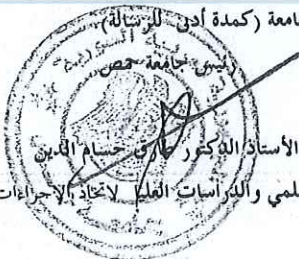 جامعة (كمدة أدنى للرسالة)
رئيس جامعة حمص
الأستاذ الدكتور طارق حسام الدين
لمي والدراسات العليا لاتخاذ الإجراءات